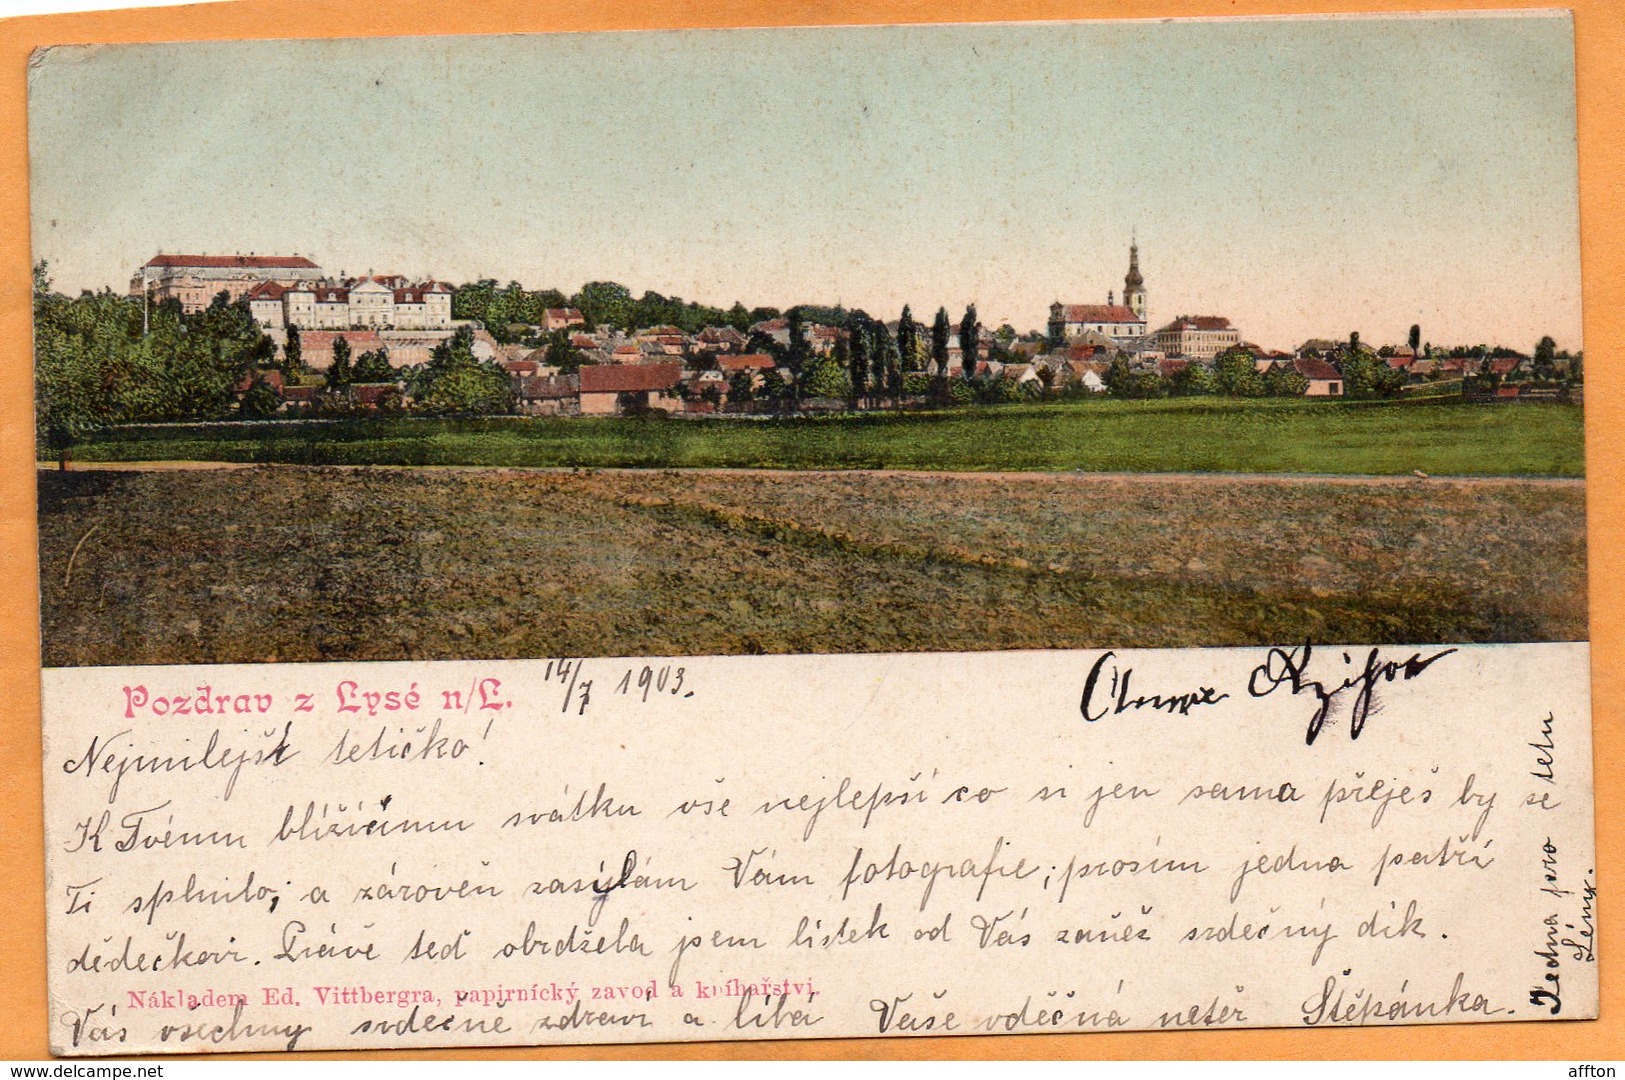 Pozdrav z Lysé n/L.
14/7 1903.
Nejmilejší tetičko!
K Tvému blížícímu svátku vše nejlepší co si jen sama přeješ by se
Ti splnilo; a zároveň zasýlám Vám fotografie; prosím jedna patří
dědečkovi. Právě teď obrdžela jsem lístek od Vás začež srdečný dík.
Nákladem Ed. Vittbergra, papirnícký zavod a kníhařstvi.
Vás všechny srdečně zdraví a líbá Vaše vděčná neteř Štěpánka.
Jedna pro tetu
Lény.
delcampe.net
affton